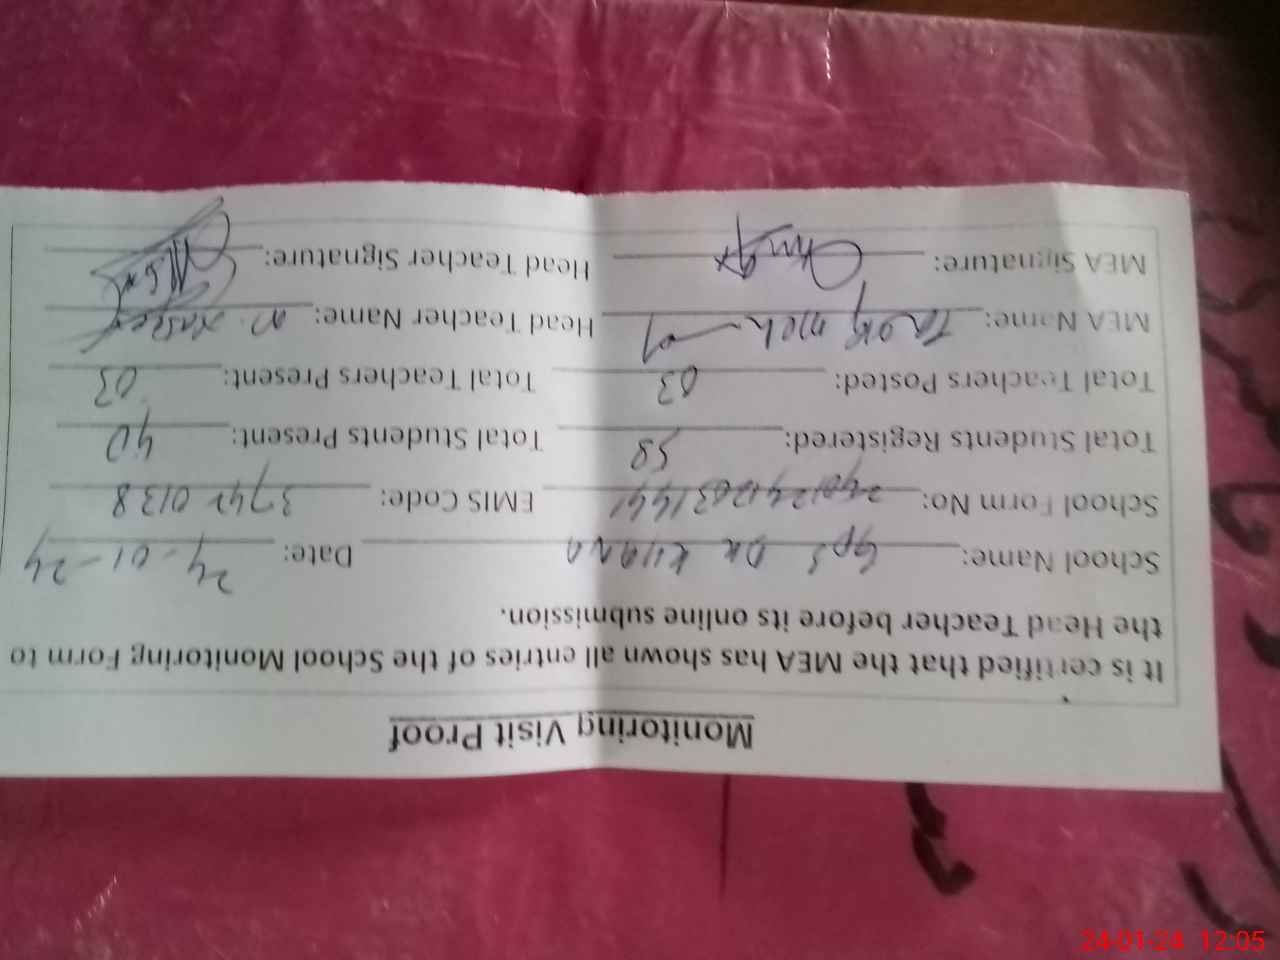 Monitoring Visit Proof
It is certified that the MEA has shown all entries of the School Monitoring Form to
the Head Teacher before its online submission.
School Name: GPS Date: 24-01-24
School Form No: EMIS Code: 37420138
Total Students Registered: 58 Total Students Present: 40
Total Teachers Posted: 03 Total Teachers Present: 03
MEA Name: Head Teacher Name:
MEA Signature: Head Teacher Signature:
24-01-24 12:05